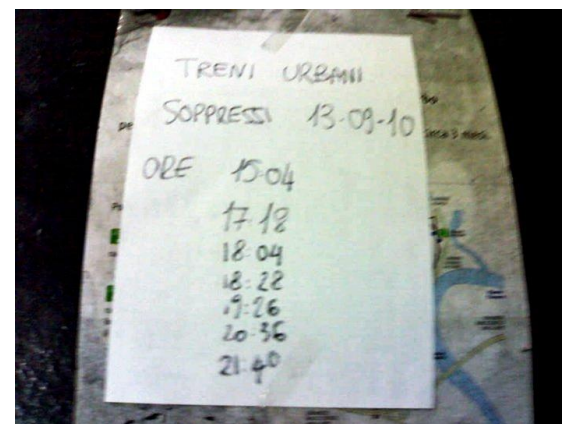 TRENI URBANI
SOPPRESSI 13-09-10
ORE 15:04
17:18
18:04
18:28
19:26
20:36
21:40